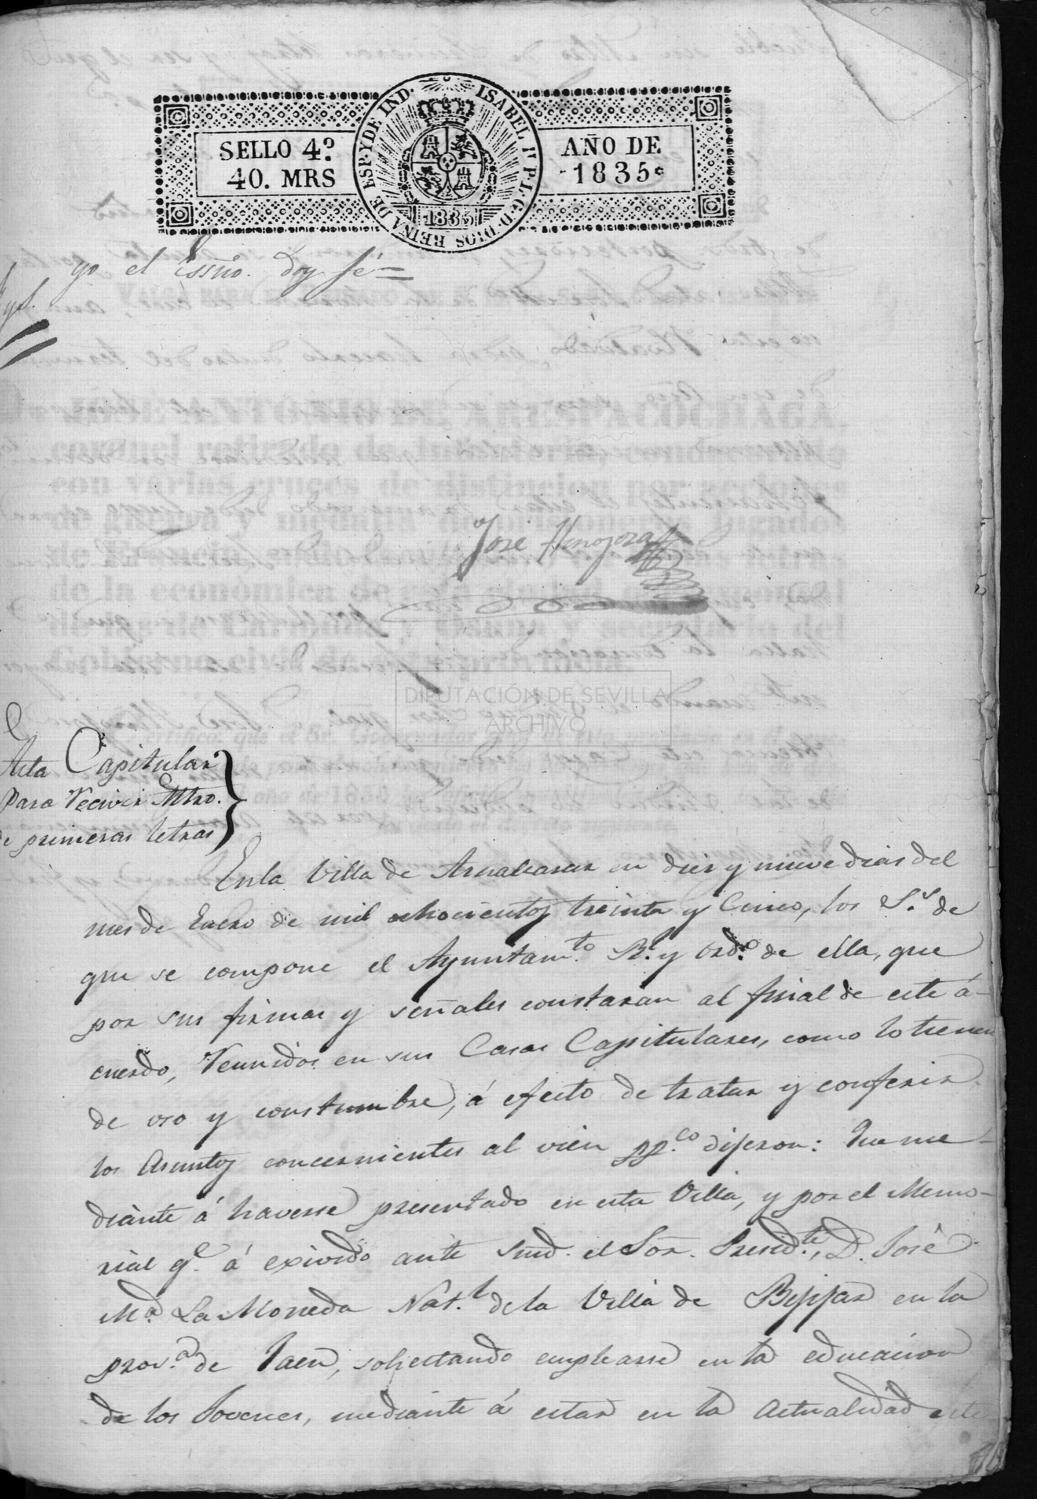 SELLO 4º
40. MRS
ISABEL IIª P. L. G. D. DIOS REINA DE ESP. Y DE IND.
1835
AÑO DE
1835
yo el Essno. doy fé
José Hinojosa
DIPUTACIÓN DE SEVILLA
ARCHIVO
Acta Capitular
Para recivir Mtro.
de primeras letras
En la Villa de Aznalcazar en diez y nueve dias del
mes de Enero de mil ochocientos treinta y Cinco, los S.s de
que se compone el Ayuntam.to R.l y ord.o de ella, que
por sus firmas y señales constaran al final de este á-
cuerdo, reunidos en sus Casas Capitulares, como lo tienen
de uso y constumbre, á efecto de tratar y conferir
los Asuntos concernientes al vien pp.co dijeron: Que me-
diante á haverse presentado en esta Villa, y por el Memo-
rial q.e á exivido ante Smd. el Sor. Presid.te, D. José
M.a La Moneda Nat.l de la Villa de Bijjar en la
prov.a de Jaen, solicitando emplearse en la educacion
de los Jovenes, mediante á estar en la actualidad este